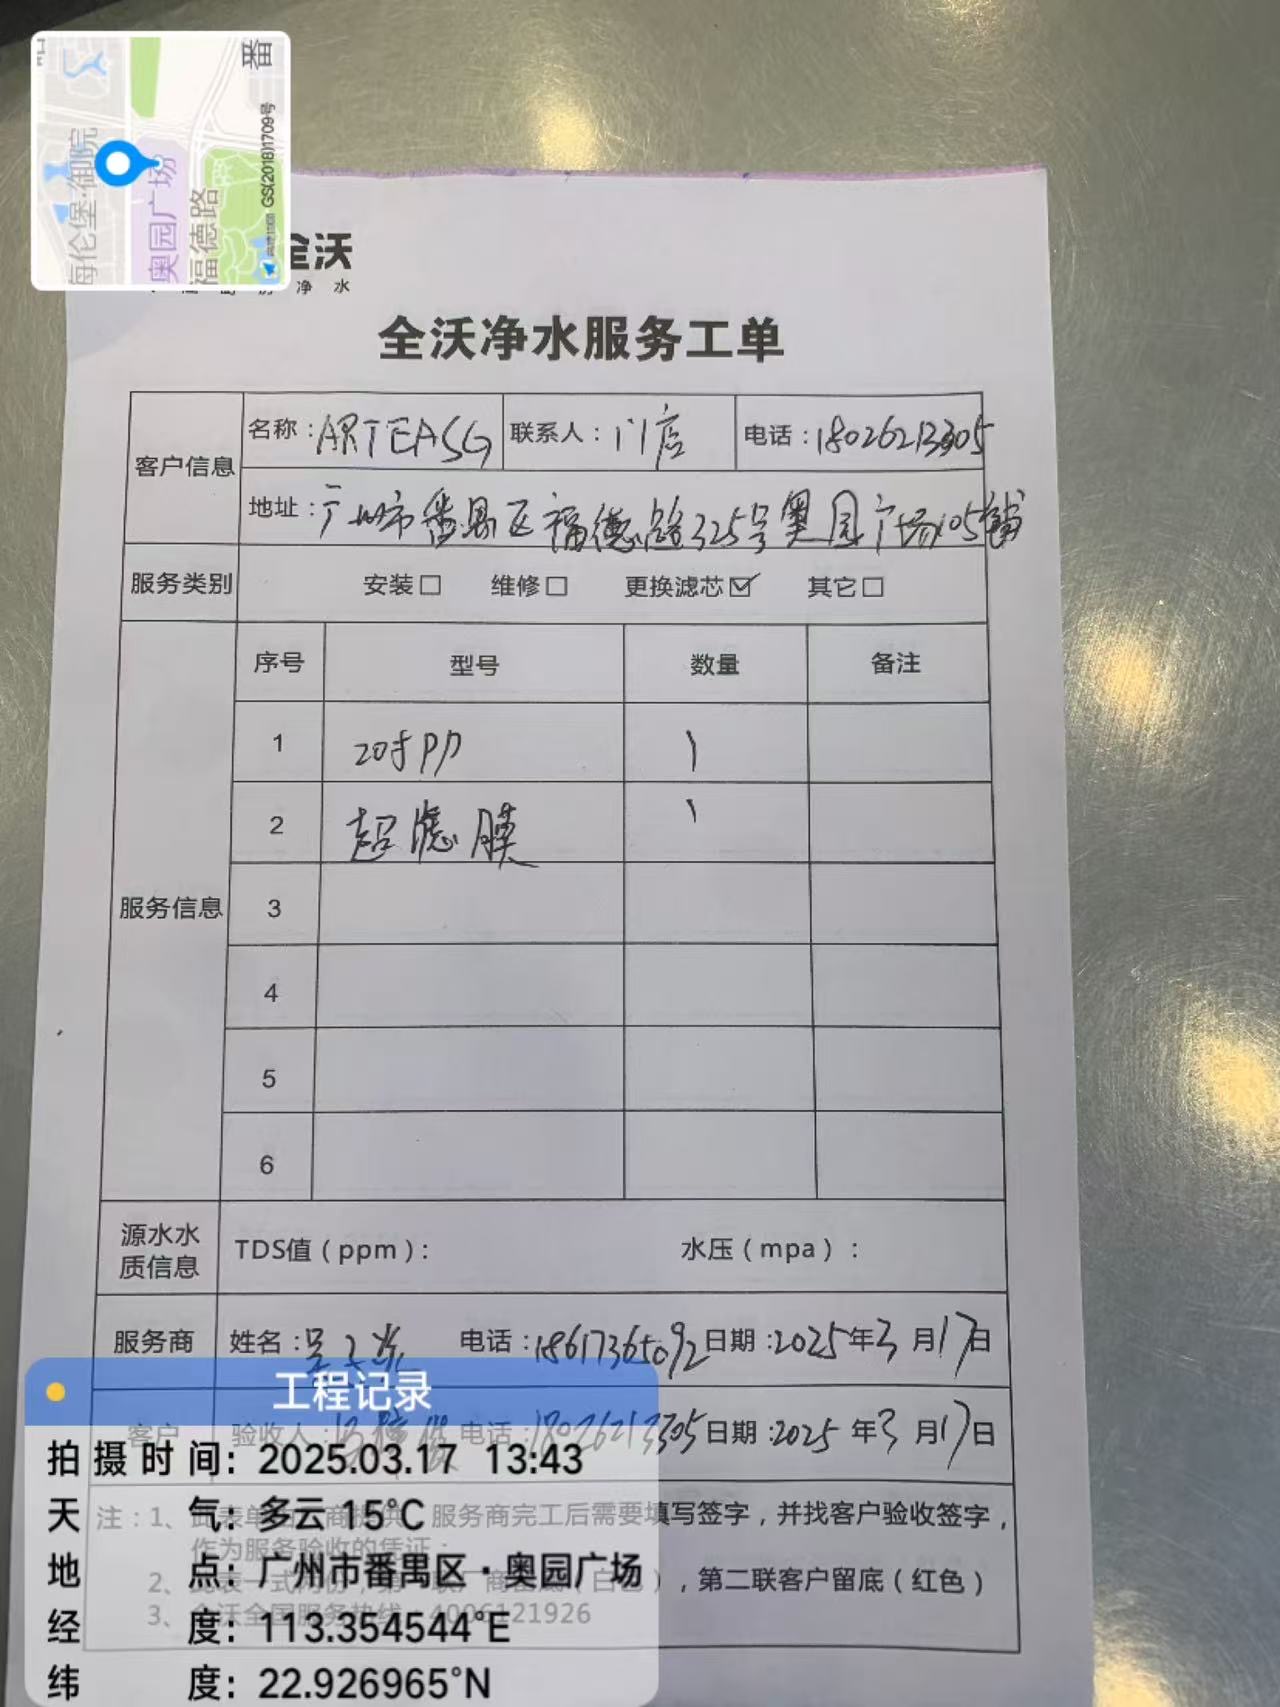 番
海伦堡·御院
奥园广场
福德路
GS(2018)1709号
全沃
净水
全沃净水服务工单
客户信息
名称：ARTEASG 联系人：门店 电话：18026213305
地址：广州市番禺区福德路325号奥园广场105铺
服务类别 安装□ 维修□ 更换滤芯☑ 其它□
服务信息
序号 型号 数量 备注
1 20寸PP 1
2 超滤膜 1
3
4
5
6
源水水质信息 TDS值（ppm）： 水压（mpa）：
服务商 姓名：吴 电话：18617365092 日期：2025年3月17日
客户 验收人： 电话：18026213305 日期：2025年3月17日
注：1、 服务商完工后需要填写签字，并找客户验收签字，
作为服务验收的凭证；
2、 ，第二联客户留底（红色）
3、全沃全国服务热线：4006121926
工程记录
拍摄时间：2025.03.17 13:43
天气：多云 15°C
地点：广州市番禺区·奥园广场
经度：113.354544°E
纬度：22.926965°N